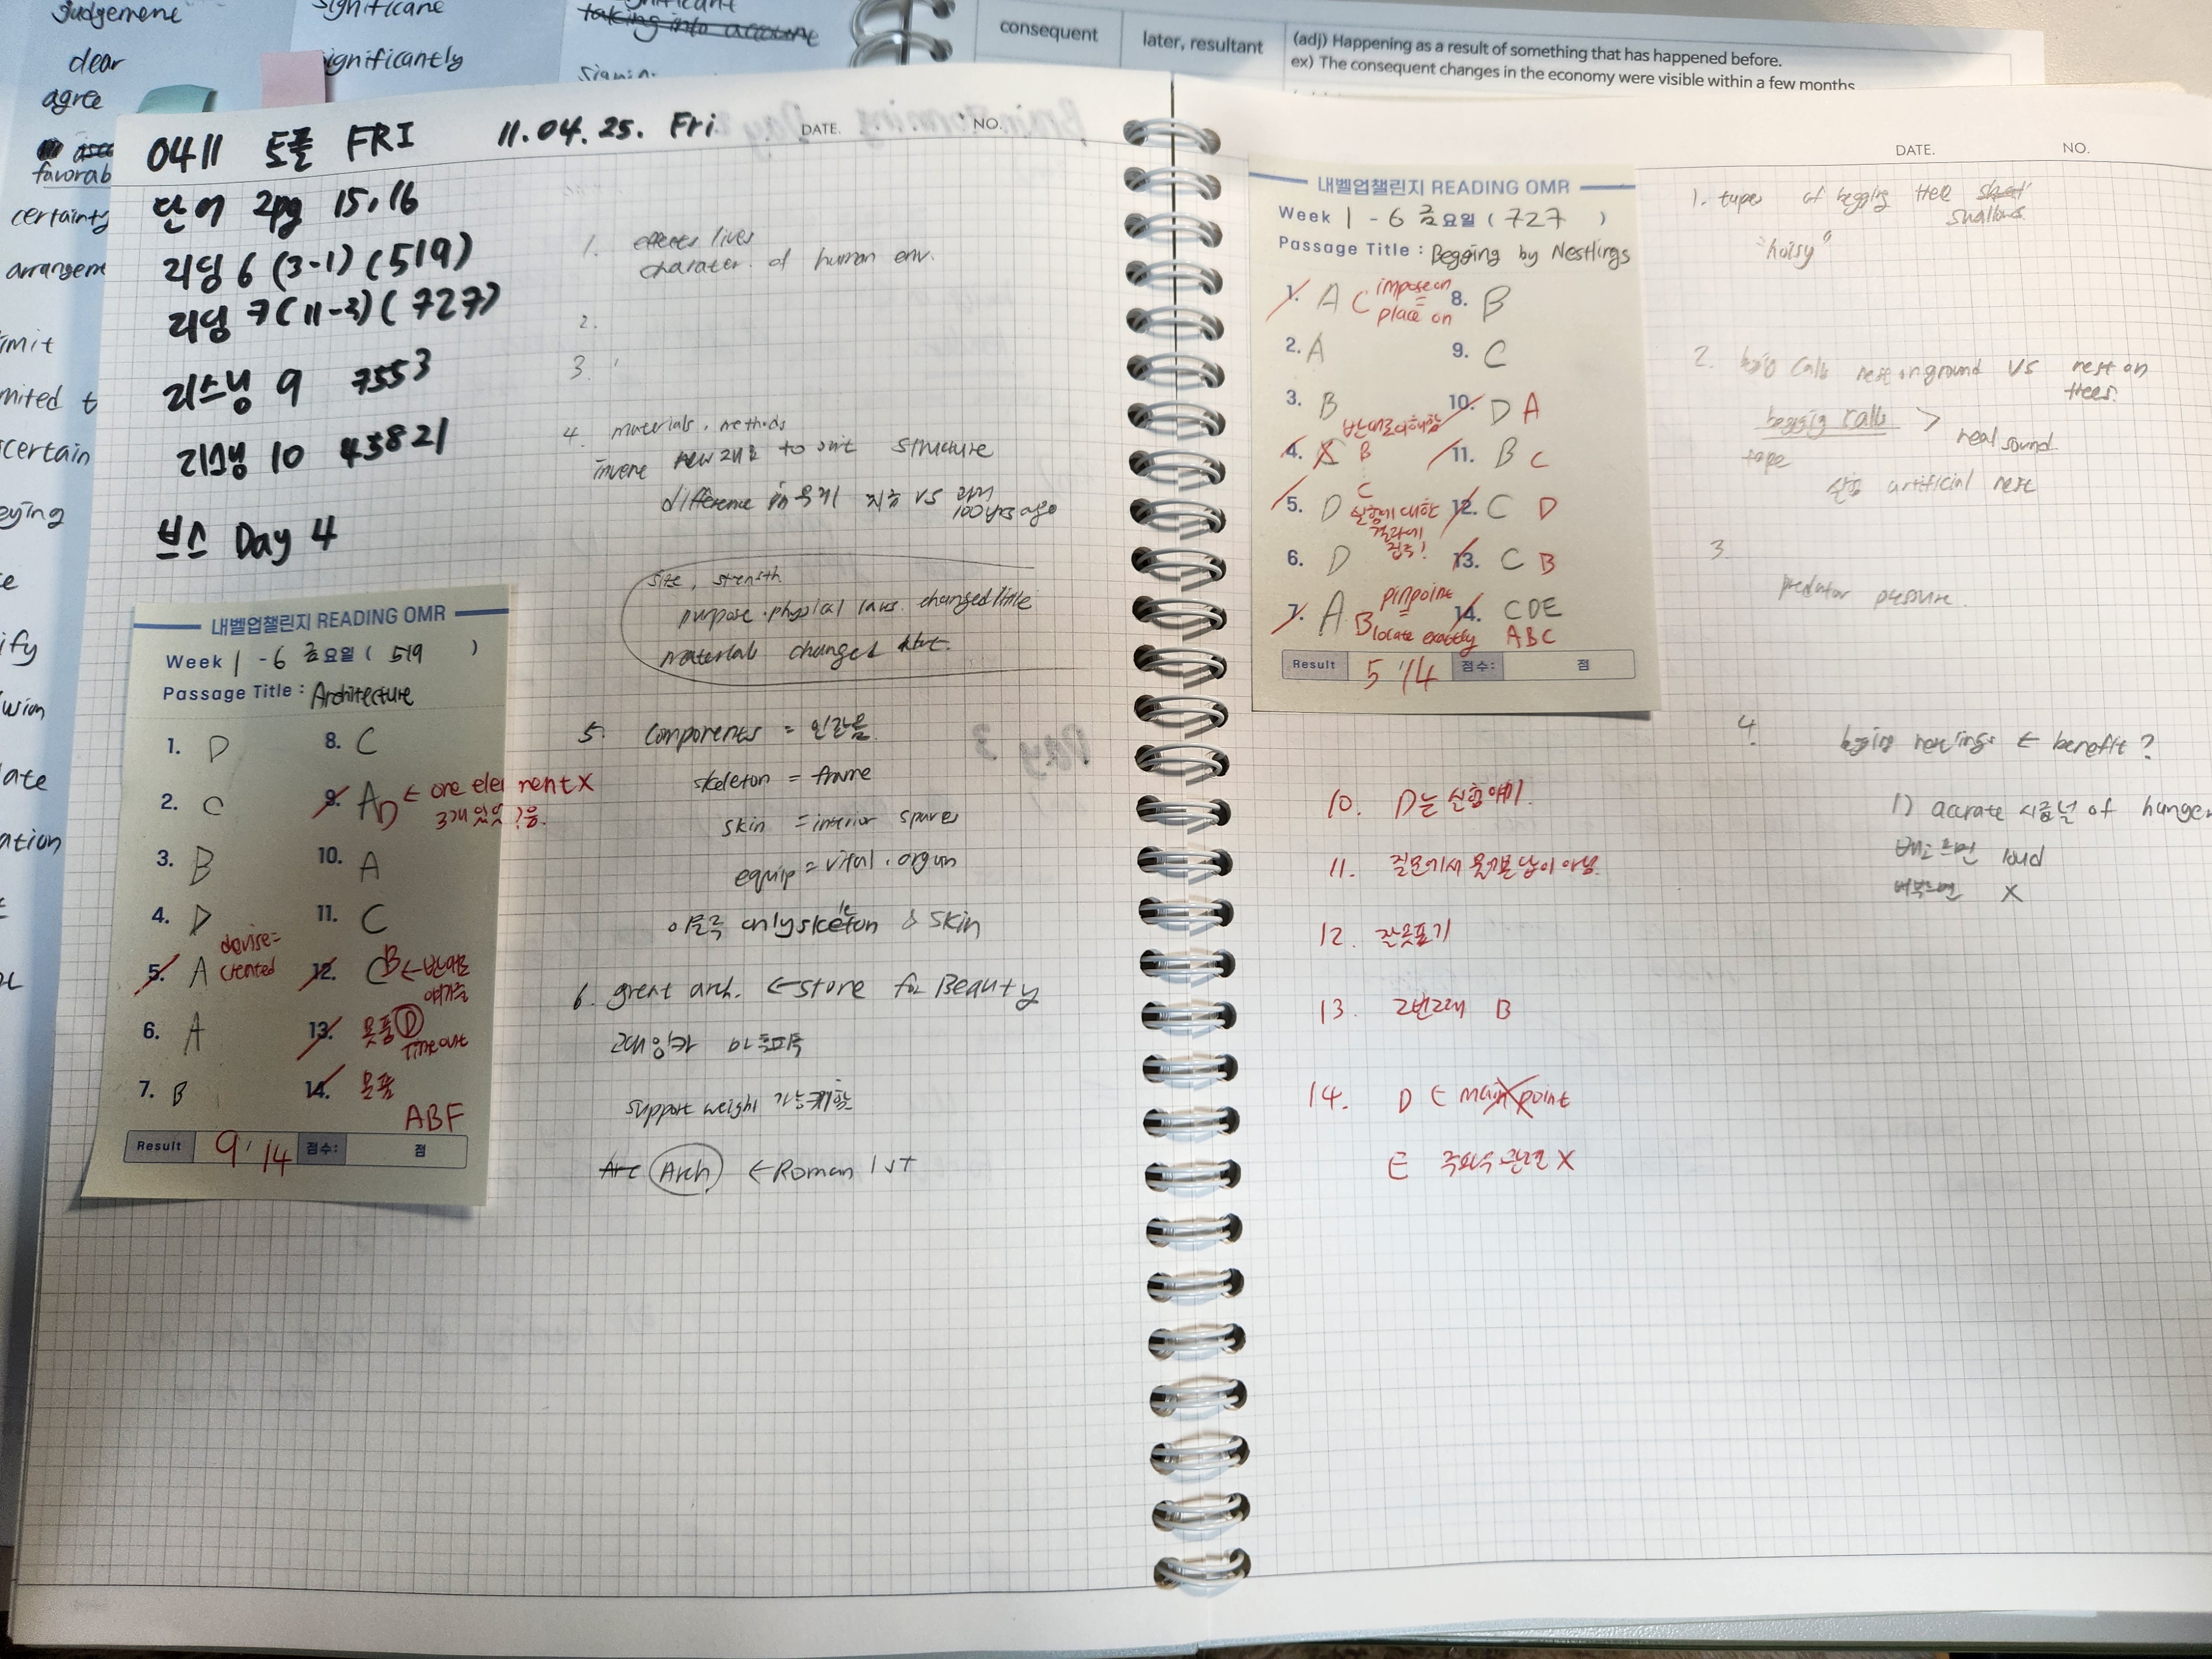 judgement
significane
clear
significantly
agree
taking into account
favorab
certainty
arrangem
consequent
later, resultant
(adj) Happening as a result of something that has happened before.
ex) The consequent changes in the economy were visible within a few months
0411 토플 FRI
11.04.25. Fri
DATE.
NO.
단어 2pg 15, 16
리딩 6 (3-1) (519)
리딩 7 (11-3) (727)
리스닝 9 7553
리스닝 10 43821
브스 Day 4
내벨업챌린지 READING OMR
Week 1 - 6 금요일 ( 519 )
Passage Title : Architecture
1. D
2. C
3. B
4. D
5. A devise = created
6. A
7. B
8. C
9. A D ← one element X
3개 있
10. A
11. C
12. C B ← 반대로
13. 못품 D
Time out
14. 못품
ABF
Result 9/14 점수: 점
1. effects lives
charater of human env.
2.
3.
4. materials, methods
invene new 재료 to suit structure
difference in 무게 지금 vs 과거
100yrs ago
size, strength
purpose. physical laws. changed little
materials changed
5. Components = 인간몸
skeleton = frame
skin = interior spares
equip = vital. organ
only skeleton & skin
6. great arch. ← store for Beauty
support weight 가능케함
Arc Arch ← Roman 1st
내벨업챌린지 READING OMR
Week 1 - 6 금요일 ( 727 )
Passage Title : Begging by Nestlings
1. A C impose on
= place on
2. A
3. B
4. B 반대로 이해함
5. D C 실험에 대한
결과에
집중!
6. D
7. A B pinpoint
= locate exactly
8. B
9. C
10. D A
11. B C
12. C D
13. C B
14. CDE
ABC
Result 5/14 점수: 점
10. D는 실험얘기.
11. 질문에서 물어본 답이 아님.
12. 잘못표기
13. 2번그래 B
14. D ← main point
E 주파수 관련 X
DATE.
NO.
1. types of begging tree
swallows
"noisy"
2. begg calls nest on ground vs nest on
trees.
beggig calls >
real sound
tape
artificial nest
3.
predator pressure.
4. begging nestlings ← benefit?
1) accrate 시그널 of hunger
배고프면 loud
배부르면 X